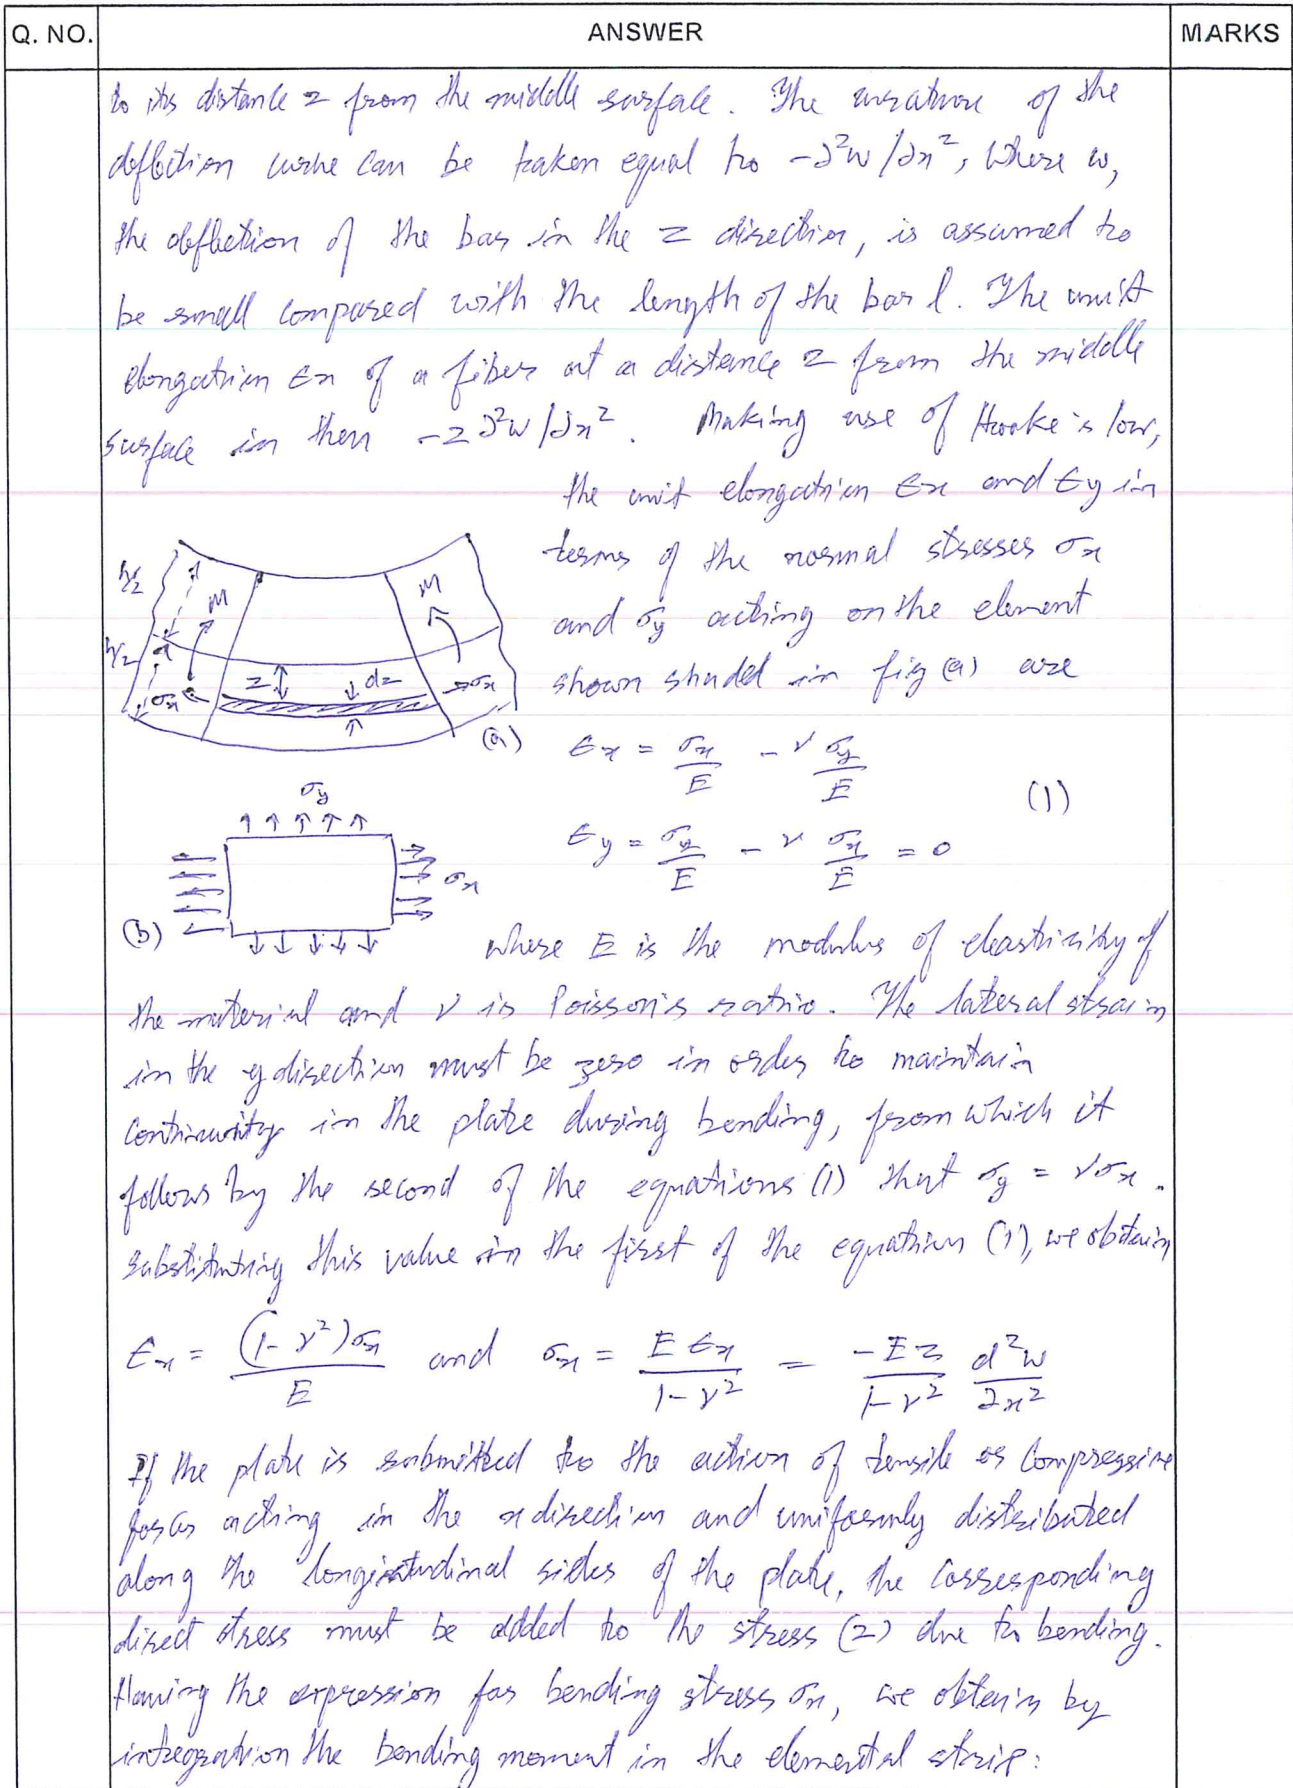 Q. NO. ANSWER MARKS
to its distance z from the middle surface. The curvature of the
deflection curve can be taken equal to -∂²w/∂x², where w,
the deflection of the bar in the z direction, is assumed to
be small compared with the length of the bar l. The unit
elongation εx of a fiber at a distance z from the middle
surface is then -z∂²w/∂x². Making use of Hooke's law,
the unit elongation εx and εy in
terms of the normal stresses σx
and σy acting on the element
shown shaded in fig (a) are
h/2
h/2
M
M
z
dz
σx
σx
(a)
εx = σx/E - ν σy/E
(1)
εy = σy/E - ν σx/E = 0
σy
σx
(b)
where E is the modulus of elasticity of
the material and ν is Poisson's ratio. The lateral strain
in the y direction must be zero in order to maintain
continuity in the plate during bending, from which it
follows by the second of the equations (1) that σy = νσx.
substituting this value in the first of the equation (1), we obtain
εx = (1-ν²)σx/E and σx = E εx/1-ν² = -Ez/1-ν² d²w/∂x²
If the plate is submitted to the action of tensile or compressive
forces acting in the x direction and uniformly distributed
along the longitudinal sides of the plate, the corresponding
direct stress must be added to the stress (2) due to bending.
Having the expression for bending stress σx, we obtain by
integration the bending moment in the elemental strip: